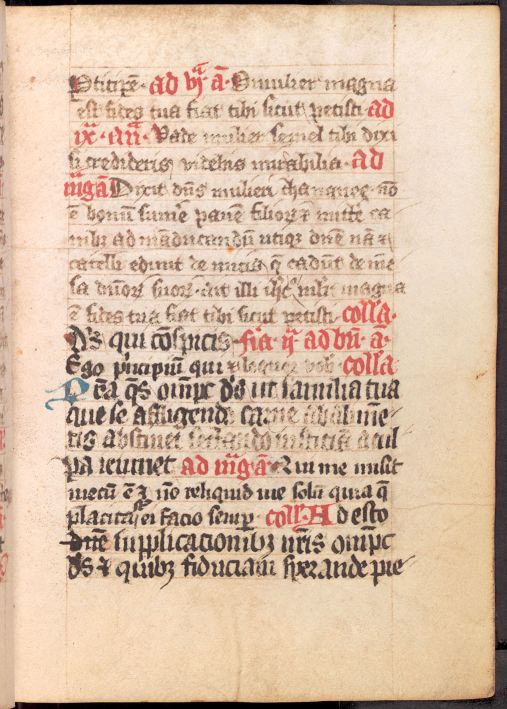 ptitipē · ad vj a͞ · O mulier magna
est fides tua fiat tibi sicut petisti ad
ix · añ · Vade mulier semel tibi dixi
si credideris videbis mirabilia · ad
m͞g a͞ Dixit dn̄s mulieri chananee nō
ē bonum sumēe panē filior̄ ⁊ mitte ca
nibȝ ad māducandū utiqȝ dn̄e nā ⁊
catelli edunt de micis q̄ cadūt de mē
sa dn̄orȝ suorȝ ait illi ih̄c mlr̄ magna
ē fides tua fiat tibi sicut petisti · coll̄a ·
D̄s qui cōspicis · f̄ia ij ad bn̄ a͞ ·
Ego p̄ncipiū qui ⁊ loquor vob̄ · coll̄a
P c̄a q̄s om̄pc d̄s ut familia tua
que se affligendo carne ab alimē
tis abstinet sectando iusticia a cul
pa ieiunet ad m͞g a͞ · Qui me misit
mecū ē ⁊ nō reliquid me solū quia q̄
placita sūt ei facio semꝑ coll̄ A desto
dn̄e supplicacionibȝ nr̄is om̄pc
d̄s ⁊ quibȝ fiduciam sperande pie